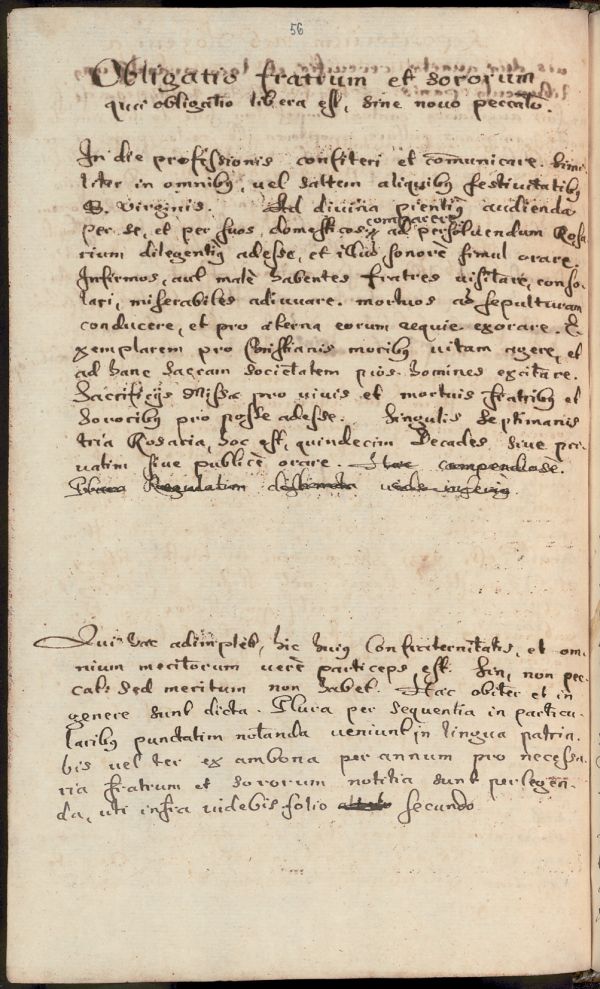 56
Obligatio fratrum et sororum
quæ obligatio libera est, sine novo peccato.
In die professionis confiteri et communicare. Simi
liter in omnibus, vel saltem aliquibus festivitatibus
B. Virginis. Ad divina audienda
per se, et per suos domesticos, comparere
ad persolvendum Rosa
rium adesse, et illud sonorè simul orare.
Infirmos, aut malè habentes fratres visitare, conso
lari, miserabiles adiuvare. mortuos ad sepulturam
conducere, et pro æterna eorum requie exorare. E
xemplarem pro Christianis moribus vitam agere, et
ad hanc sacram societatem pios homines excitare.
Sacrificijs Missæ pro vivis et mortuis fratribus et
sororibus pro posse adesse. Singulis septimanis
tria Rosaria, hoc est, quindecim Decades sive pri
vatim sive publicè orare. Hæc compendiose.
Qui hæc adimplet, hic huius Confraternitatis, et om
nium meritorum verè particeps est. Sin, non pec
cat: sed meritum non habet. Hæc obiter et in
genere sunt dicta. Plura per sequentia in particu
laribus punctatim notanda veniunt in lingua patria.
bis vel ter ex ambona per annum pro necessa
ria fratrum et sororum notitia sunt perlegen
da, uti infra videbis folio secundo